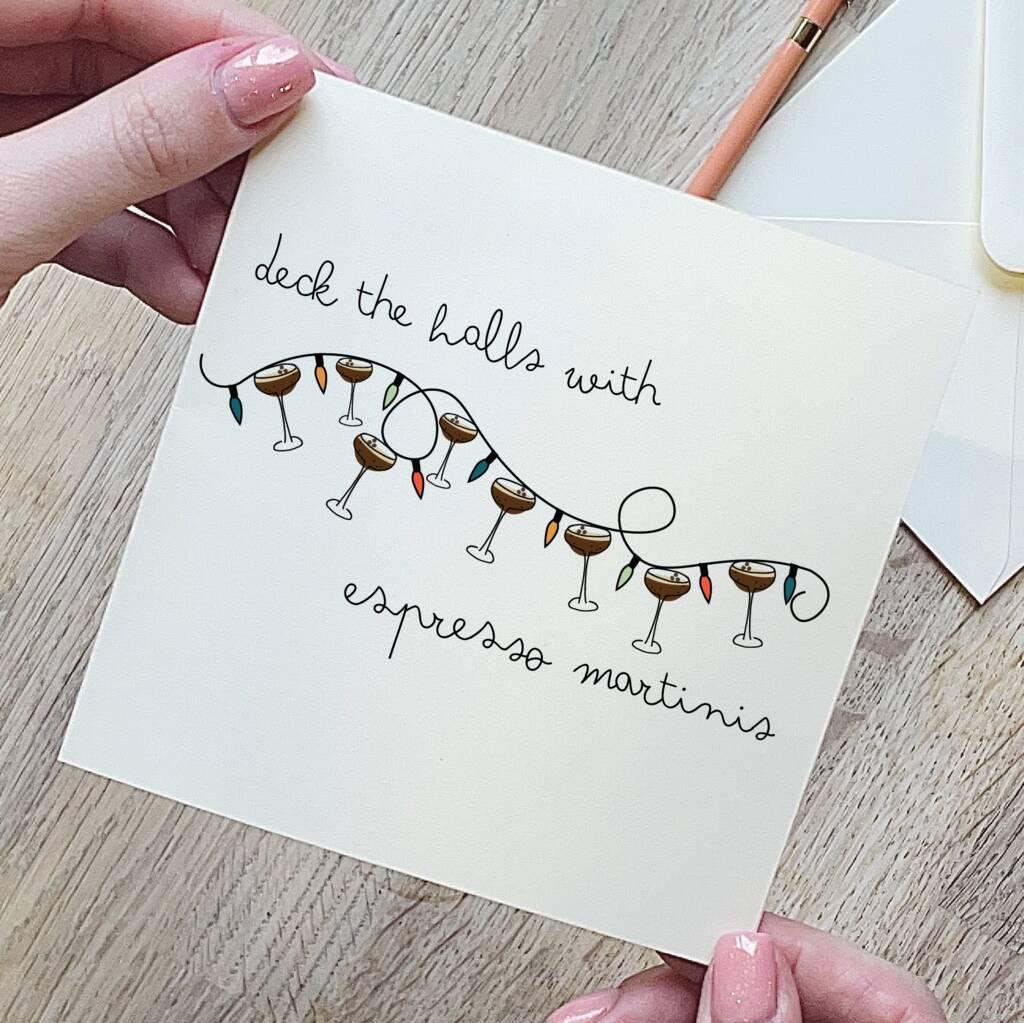 deck the halls with
espresso martinis